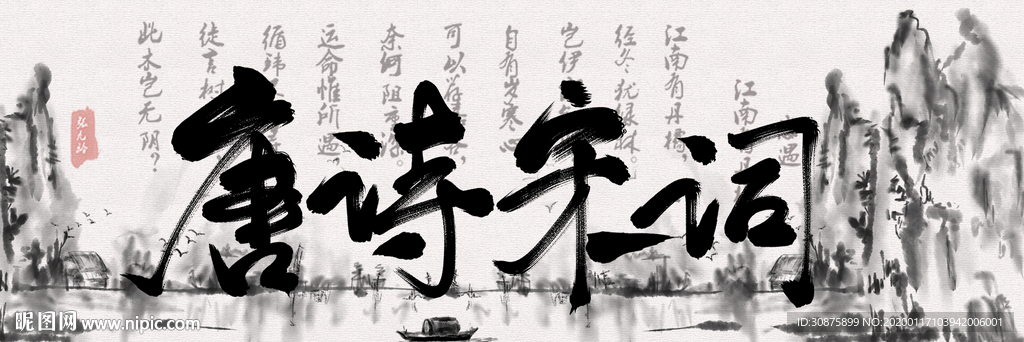 唐诗宋词
遇
江南
江南有丹橘，
经冬犹绿林。
岂伊
自有岁寒心
可以
奈何阻重深。
运命惟所遇，
循
徒言树
此木岂无阴？
张九龄
昵图网 www.nipic.com
ID:30875899 NO:20200117103942006001